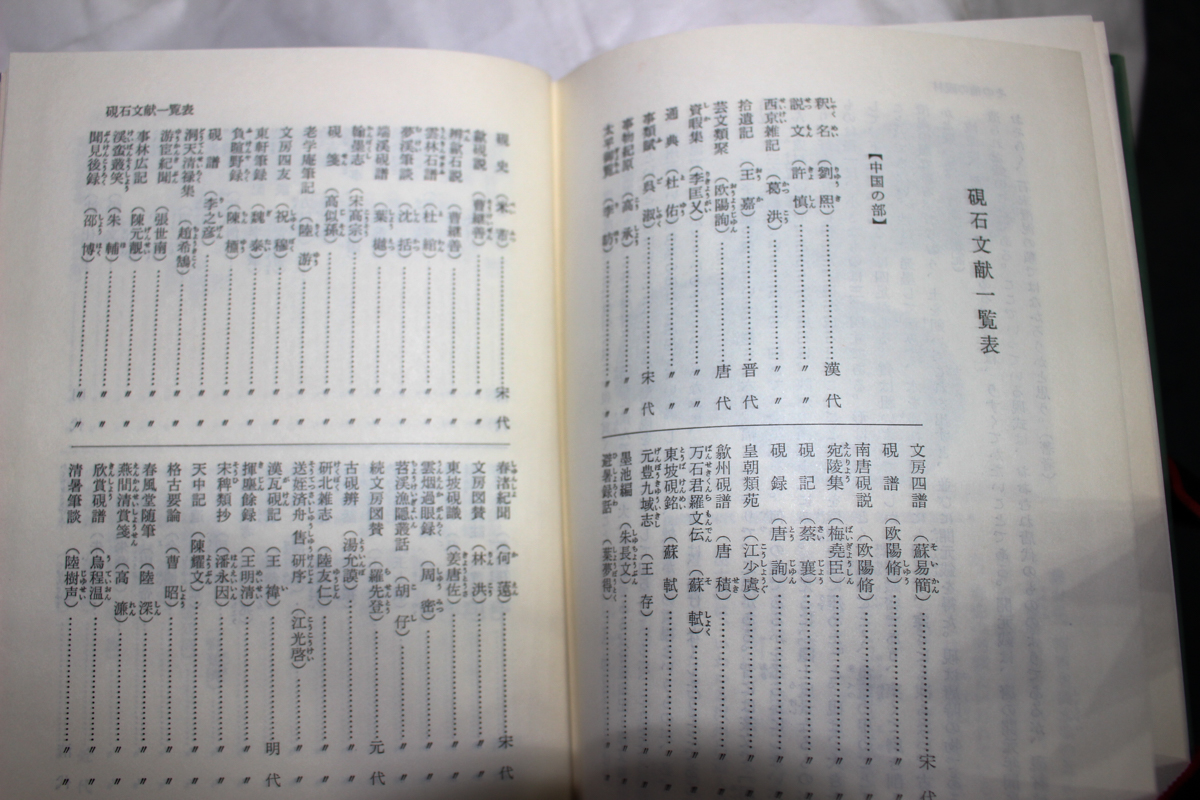 硯石文献一覧表
【中国の部】
釈名（劉熙）……漢代
説文（許慎）……〃〃
西京雑記（葛洪）……〃〃
拾遺記（王嘉）……晋代
芸文類聚（欧陽詢）……唐代
資暇集（李匡乂）……〃〃
通典（杜佑）……〃〃
事類賦（呉淑）……宋代
事物紀原（高承）……〃〃
太平御覧（李昉）……〃〃
文房四譜（蘇易簡）……宋代
硯譜（欧陽脩）……〃
南唐硯説（欧陽脩）……〃
宛陵集（梅堯臣）……〃
硯記（蔡襄）……〃
硯録（唐詢）……〃
皇朝類苑（江少虞）……〃
歙州硯譜（唐積）……〃
万石君羅文伝（蘇軾）……〃
東坡硯銘（蘇軾）……〃
元豊九域志（王存）……〃
墨池編（朱長文）……〃
避暑録話（葉夢得）……〃
硯石文献一覧表
硯史（米芾）……宋代
歙硯説（曹継善）……〃〃
辨歙石説（曹継善）……〃〃
雲林石譜（杜綰）……〃〃
夢溪筆談（沈括）……〃〃
端溪硯譜（葉樾）……〃〃
翰墨志（宋高宗）……〃〃
硯箋（高似孫）……〃〃
老学庵筆記（陸游）……〃〃
文房四友（祝穆）……〃〃
東軒筆録（魏泰）……〃〃
負暄野録（陳槱）……〃〃
硯譜（李之彦）……〃〃
洞天清禄集（趙希鵠）……〃〃
游宦紀聞（張世南）……〃〃
事林広記（陳元靚）……〃〃
溪蛮叢笑（朱輔）……〃〃
聞見後録（邵博）……〃〃
春渚紀聞（何薳）……宋代
文房図賛（林洪）……〃〃
東坡硯識（姜唐佐）……〃〃
雲烟過眼録（周密）……〃〃
苕溪漁隠叢話（胡仔）……〃〃
続文房図賛（羅先登）……元代
古硯辨（湯允謨）……〃〃
研北雑志（陸友仁）……〃〃
送経済舟售研序（江光啓）……〃〃
漢瓦硯記（王褘）……明代
揮塵餘録（王明清）……〃〃
宋稗類抄（潘永因）……〃〃
天中記（陳耀文）……〃〃
格古要論（曹昭）……〃〃
春風堂随筆（陸深）……〃〃
燕間清賞箋（高濂）……〃〃
欣賞硯譜（烏程温）……〃〃
清暑筆談（陸樹声）……〃〃